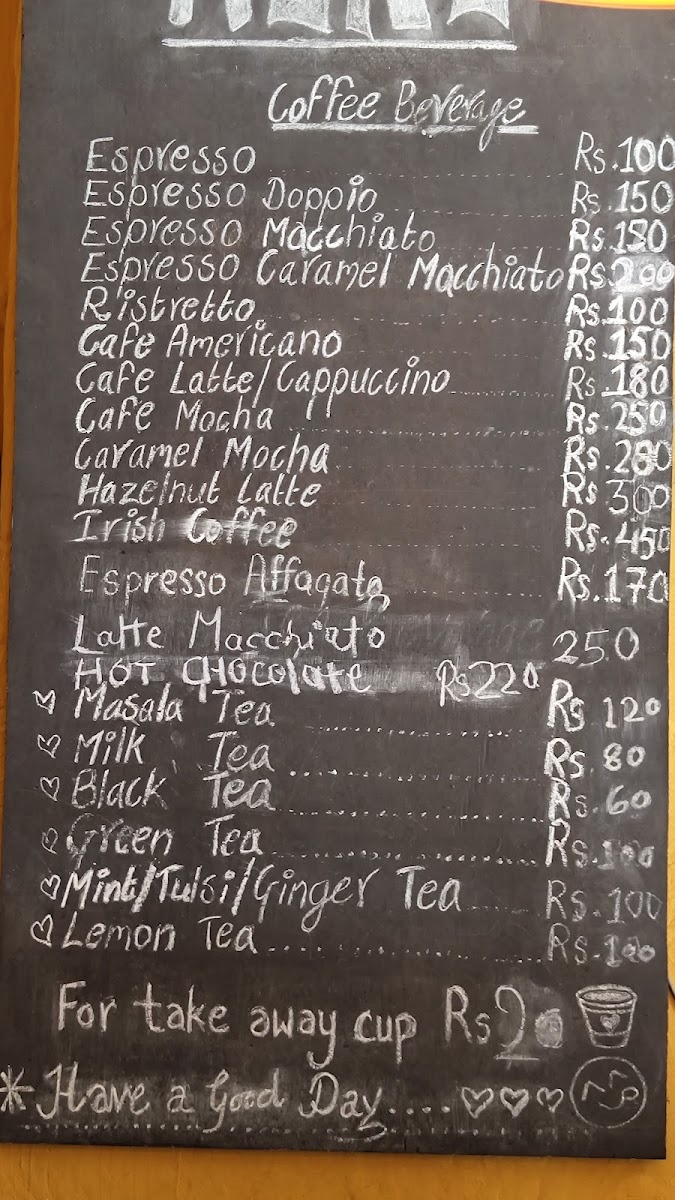 Coffee Beverage
Espresso ........ Rs.100
Espresso Doppio ........ Rs.150
Espresso Macchiato ........ Rs.180
Espresso Caramel Macchiato Rs.200
Ristretto ........ Rs.100
Cafe Americano ........ Rs.150
Cafe Latte/Cappuccino ........ Rs.180
Cafe Mocha ........ Rs.250
Caramel Mocha ........ Rs.280
Hazelnut Latte ........ Rs 300
Irish Coffee ........ Rs.450
Espresso Affagato ........ Rs.170
Latte Macchiato 250
HOT CHOColate Rs220
Masala Tea ........ Rs 120
Milk Tea ........ Rs. 80
Black Tea ........ Rs. 60
Green Tea ........ Rs.100
Mint/Tulsi/Ginger Tea ........ Rs.100
Lemon Tea ........ Rs.100
For take away cup Rs20
*Have a Good Day....